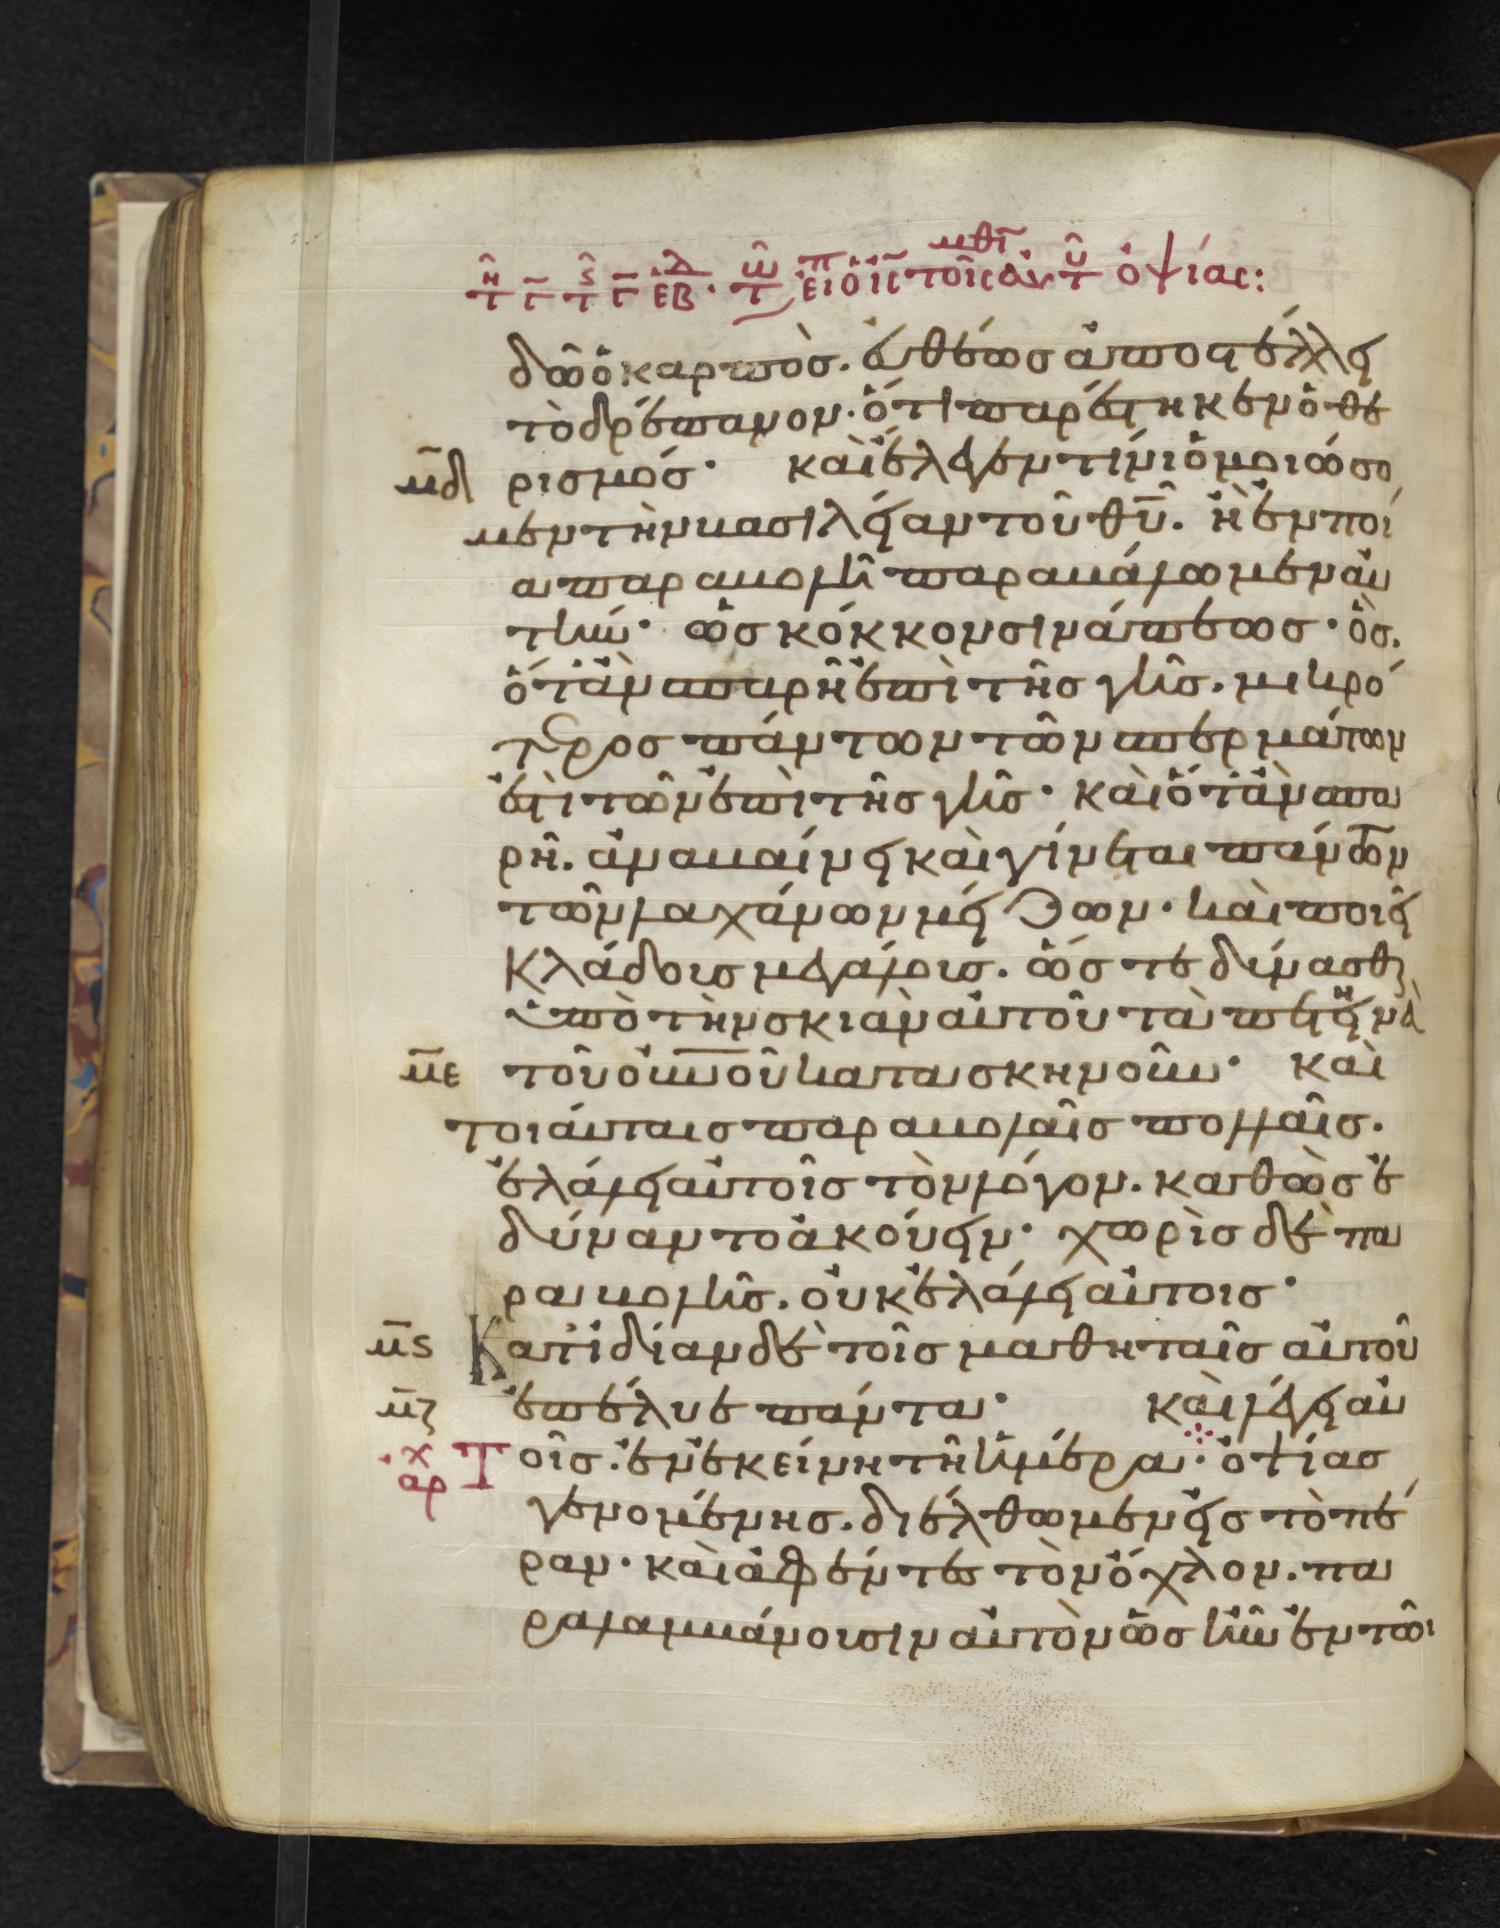 δῶ ὁ καρπὸσ. ἐυθέωσ ἀποστέλλει
τὸ δρέπανον. ὅτι παρέστηκεν ὁ θε
μδ ρισμόσ. καὶ ἔλεγεν τίνι ὁμοιώσο
μεν τὴν βασιλείαν τοῦ θῦ. ἢ ἐν ποί
α παραβολῆ παραβάλωμεν ἀυ
τήν. ὡσ κόκκον σινάπεωσ. ὃσ.
ὅταν σπαρῆ ἐπὶ τῆσ γῆσ. μικρό
τεροσ πάντων τῶν σπερμάτων
ἐστὶ τῶν ἐπὶ τῆσ γῆσ. καὶ ὅταν σπα
ρῆ. ἀναβαίνει καὶ γίνεται πάντων
τῶν λαχάνων μείζων. καὶ ποιεῖ
κλάδουσ μεγάλουσ. ὥστε δύνασθαι
ὑπὸ τὴν σκιὰν αὐτοῦ τὰ πετεινὰ
με τοῦ οὐνοῦ κατασκηνοῦν. καὶ
τοιάυταισ παραβολαῖσ πολλαῖσ.
ἐλάλει αὐτοῖσ τὸν λόγον. καθὼσ ἐ
δύναντο ἀκούειν. χωρὶσ δὲ πα
ραβολῆσ. οὐκ ἐλάλει αὐτοισ.
μς Κατιδίαν δὲ τοῖσ μαθηταῖσ αὐτοῦ
μζ ἐπέλυε πάντα. καὶ λέγει αὐ
αρχ Τοῖσ. ἐν ἐκείνη τῆ ἡμέρα. ὀψίασ
γενομένησ. διέλθωμεν εἰσ τὸ πέ
ραν. καὶ ἀφέντεσ τὸν ὄχλον. πα
ραλαμβάνουσιν αὐτὸν ὡσ ἦν ἐν τῶι